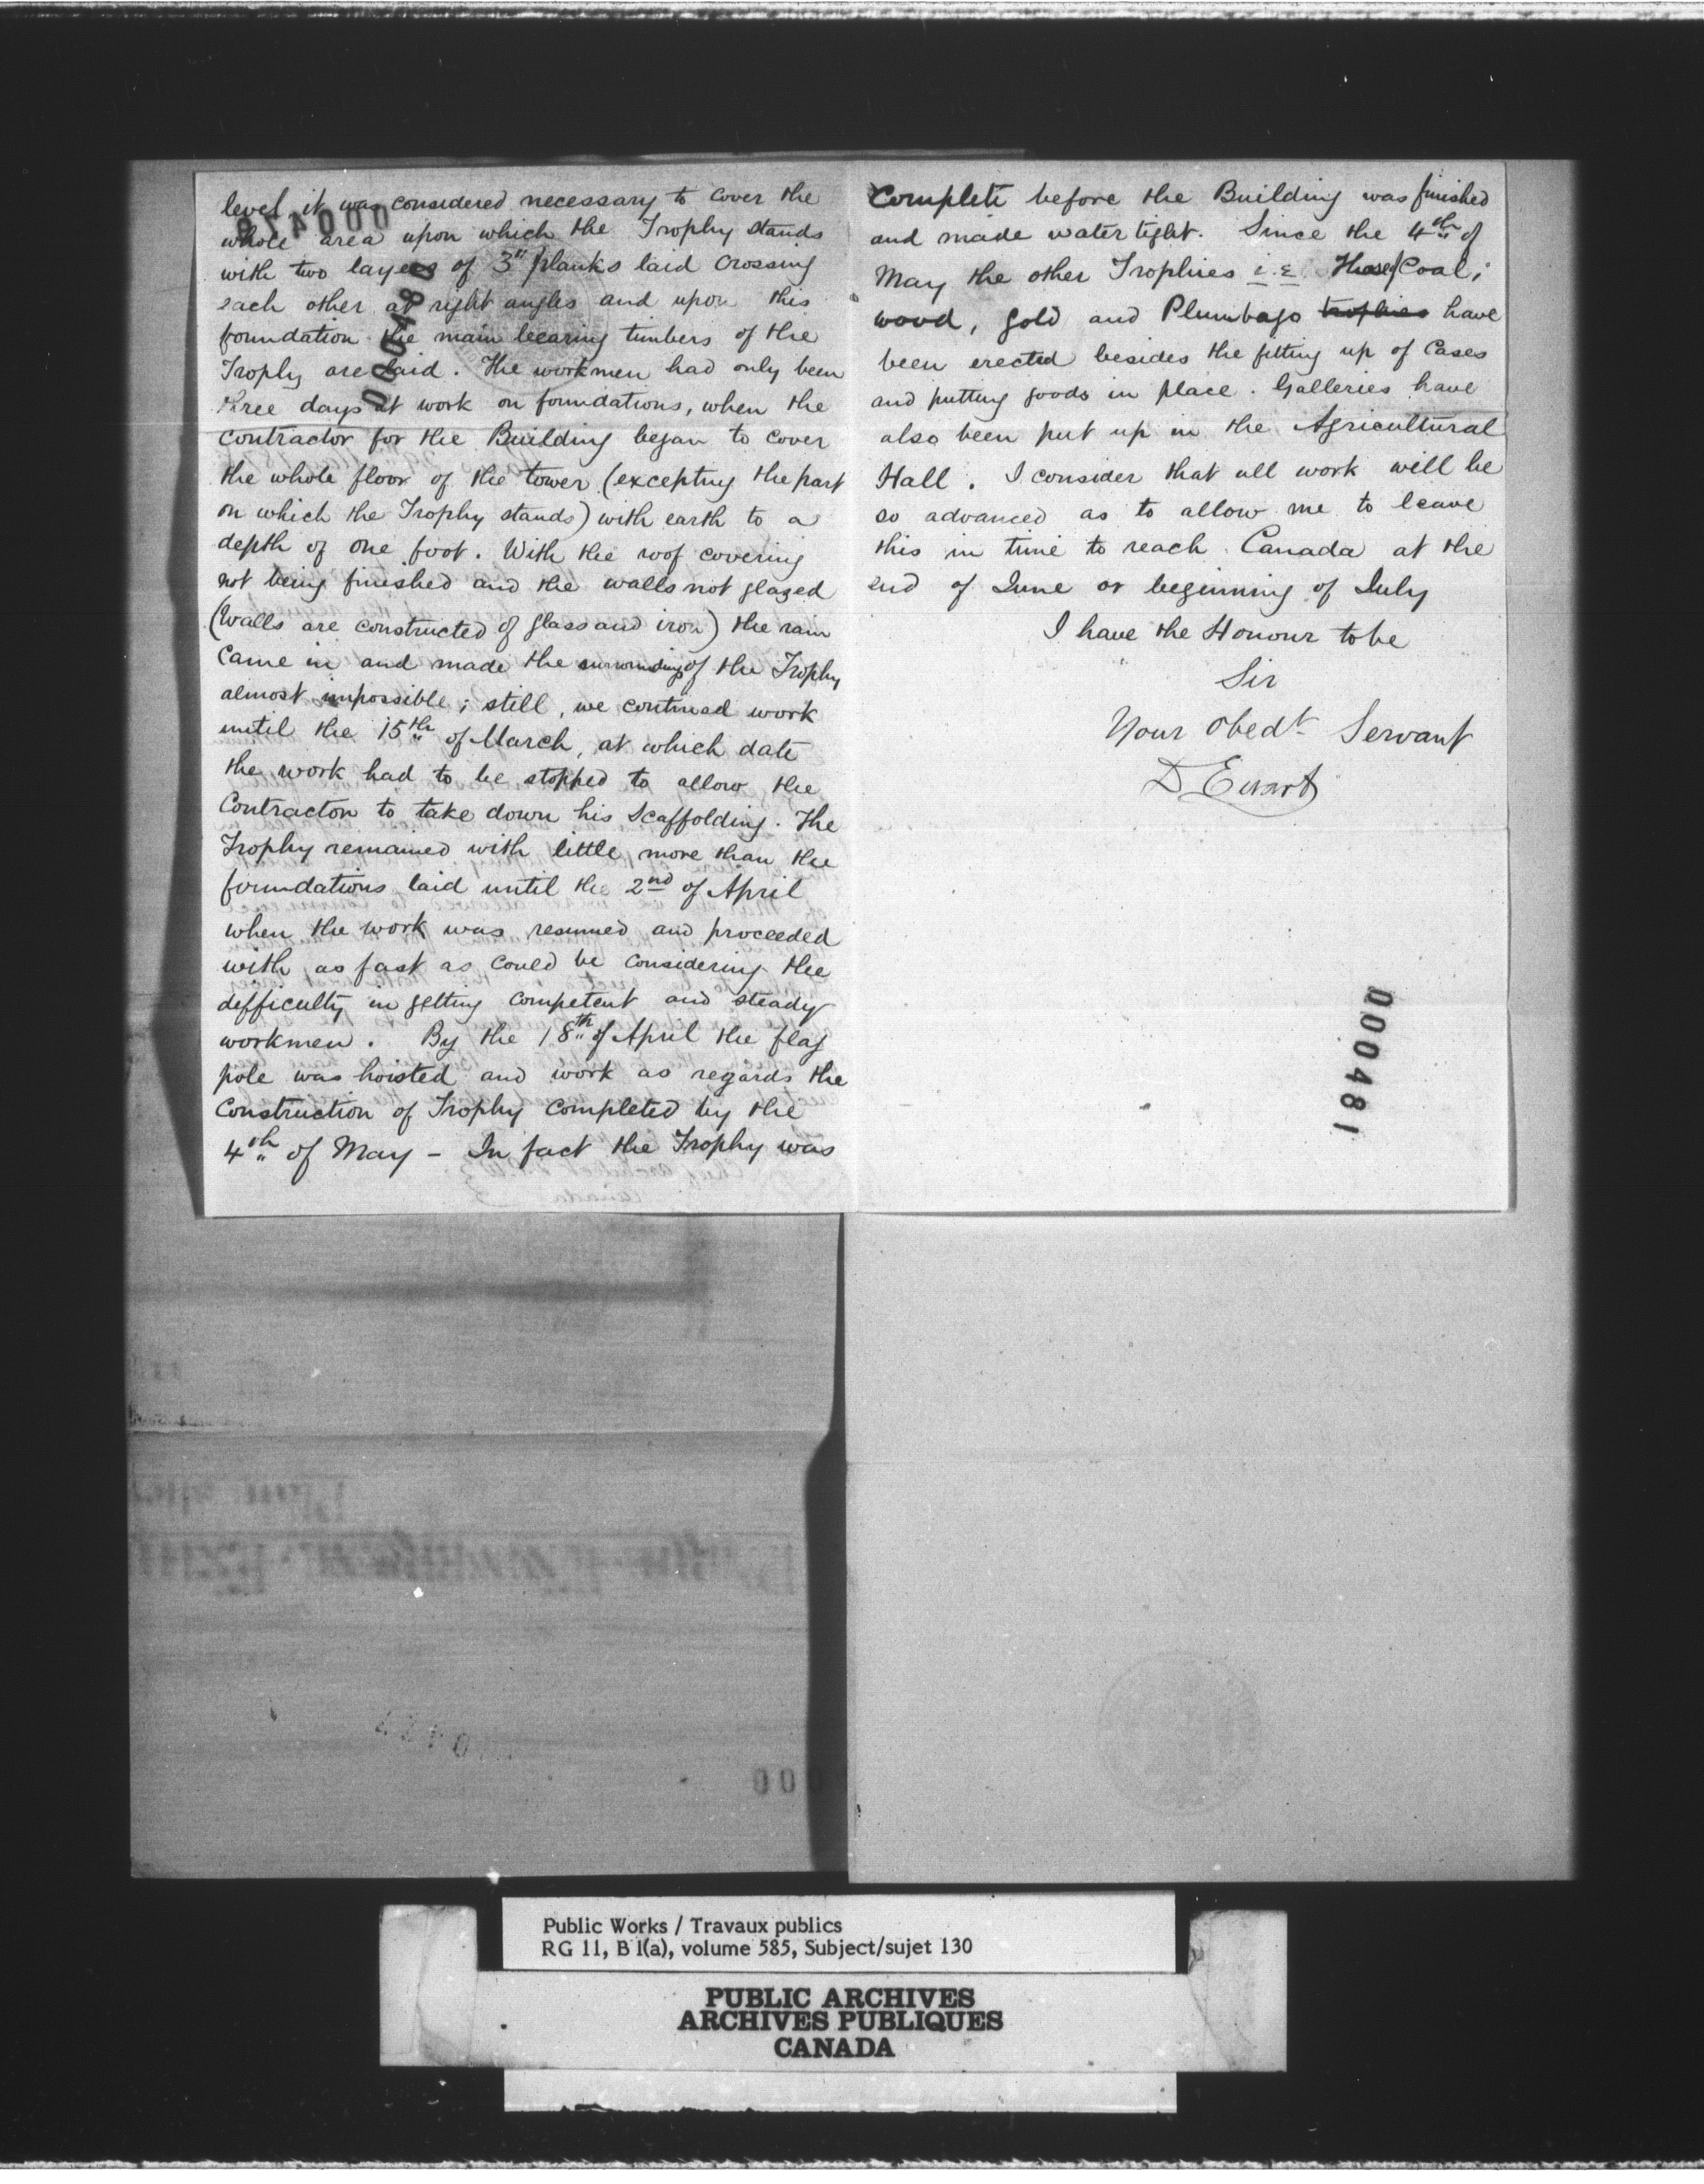 level it was considered necessary to cover the
whole area upon which the Trophy stands
with two layers of 3" planks laid crossing
each other at right angles and upon this
foundation the main bearing timbers of the
Trophy are laid. The workmen had only been
three days at work on foundations, when the
contractor for the Building began to cover
the whole floor of the tower (excepting the part
on which the Trophy stands) with earth to a
depth of one foot. With the roof covering
not being finished and the walls not glazed
(Walls are constructed of glass and iron) the rain
came in and made the surroundings of the Trophy
almost impossible; still, we continued work
until the 15th of March, at which date
the work had to be stopped to allow the
Contractor to take down his Scaffolding. The
Trophy remained with little more than the
foundations laid until the 2nd of April
when the work was resumed and proceeded
with as fast as could be considering the
defficulty in getting competent and steady
workmen. By the 18th of April the flag
pole was hoisted and work as regards the
Construction of Trophy completed by the
4th of May – In fact the Trophy was
000480
Complete before the Building was finished
and made water tight. Since the 4th of
May the other Trophies i.e. Those of Coal;
wood, gold and Plumbago trophies have
been erected besides the fitting up of Cases
and putting goods in place. Galleries have
also been put up in the Agricultural
Hall. I consider that all work will be
so advanced as to allow me to leave
this in time to reach Canada at the
end of June or beginning of July
I have the Honour to be
Sir
Your Obedt Servant
D Ewart
000481
000
Public Works / Travaux publics
RG 11, B 1(a), volume 585, Subject/sujet 130
PUBLIC ARCHIVES
ARCHIVES PUBLIQUES
CANADA